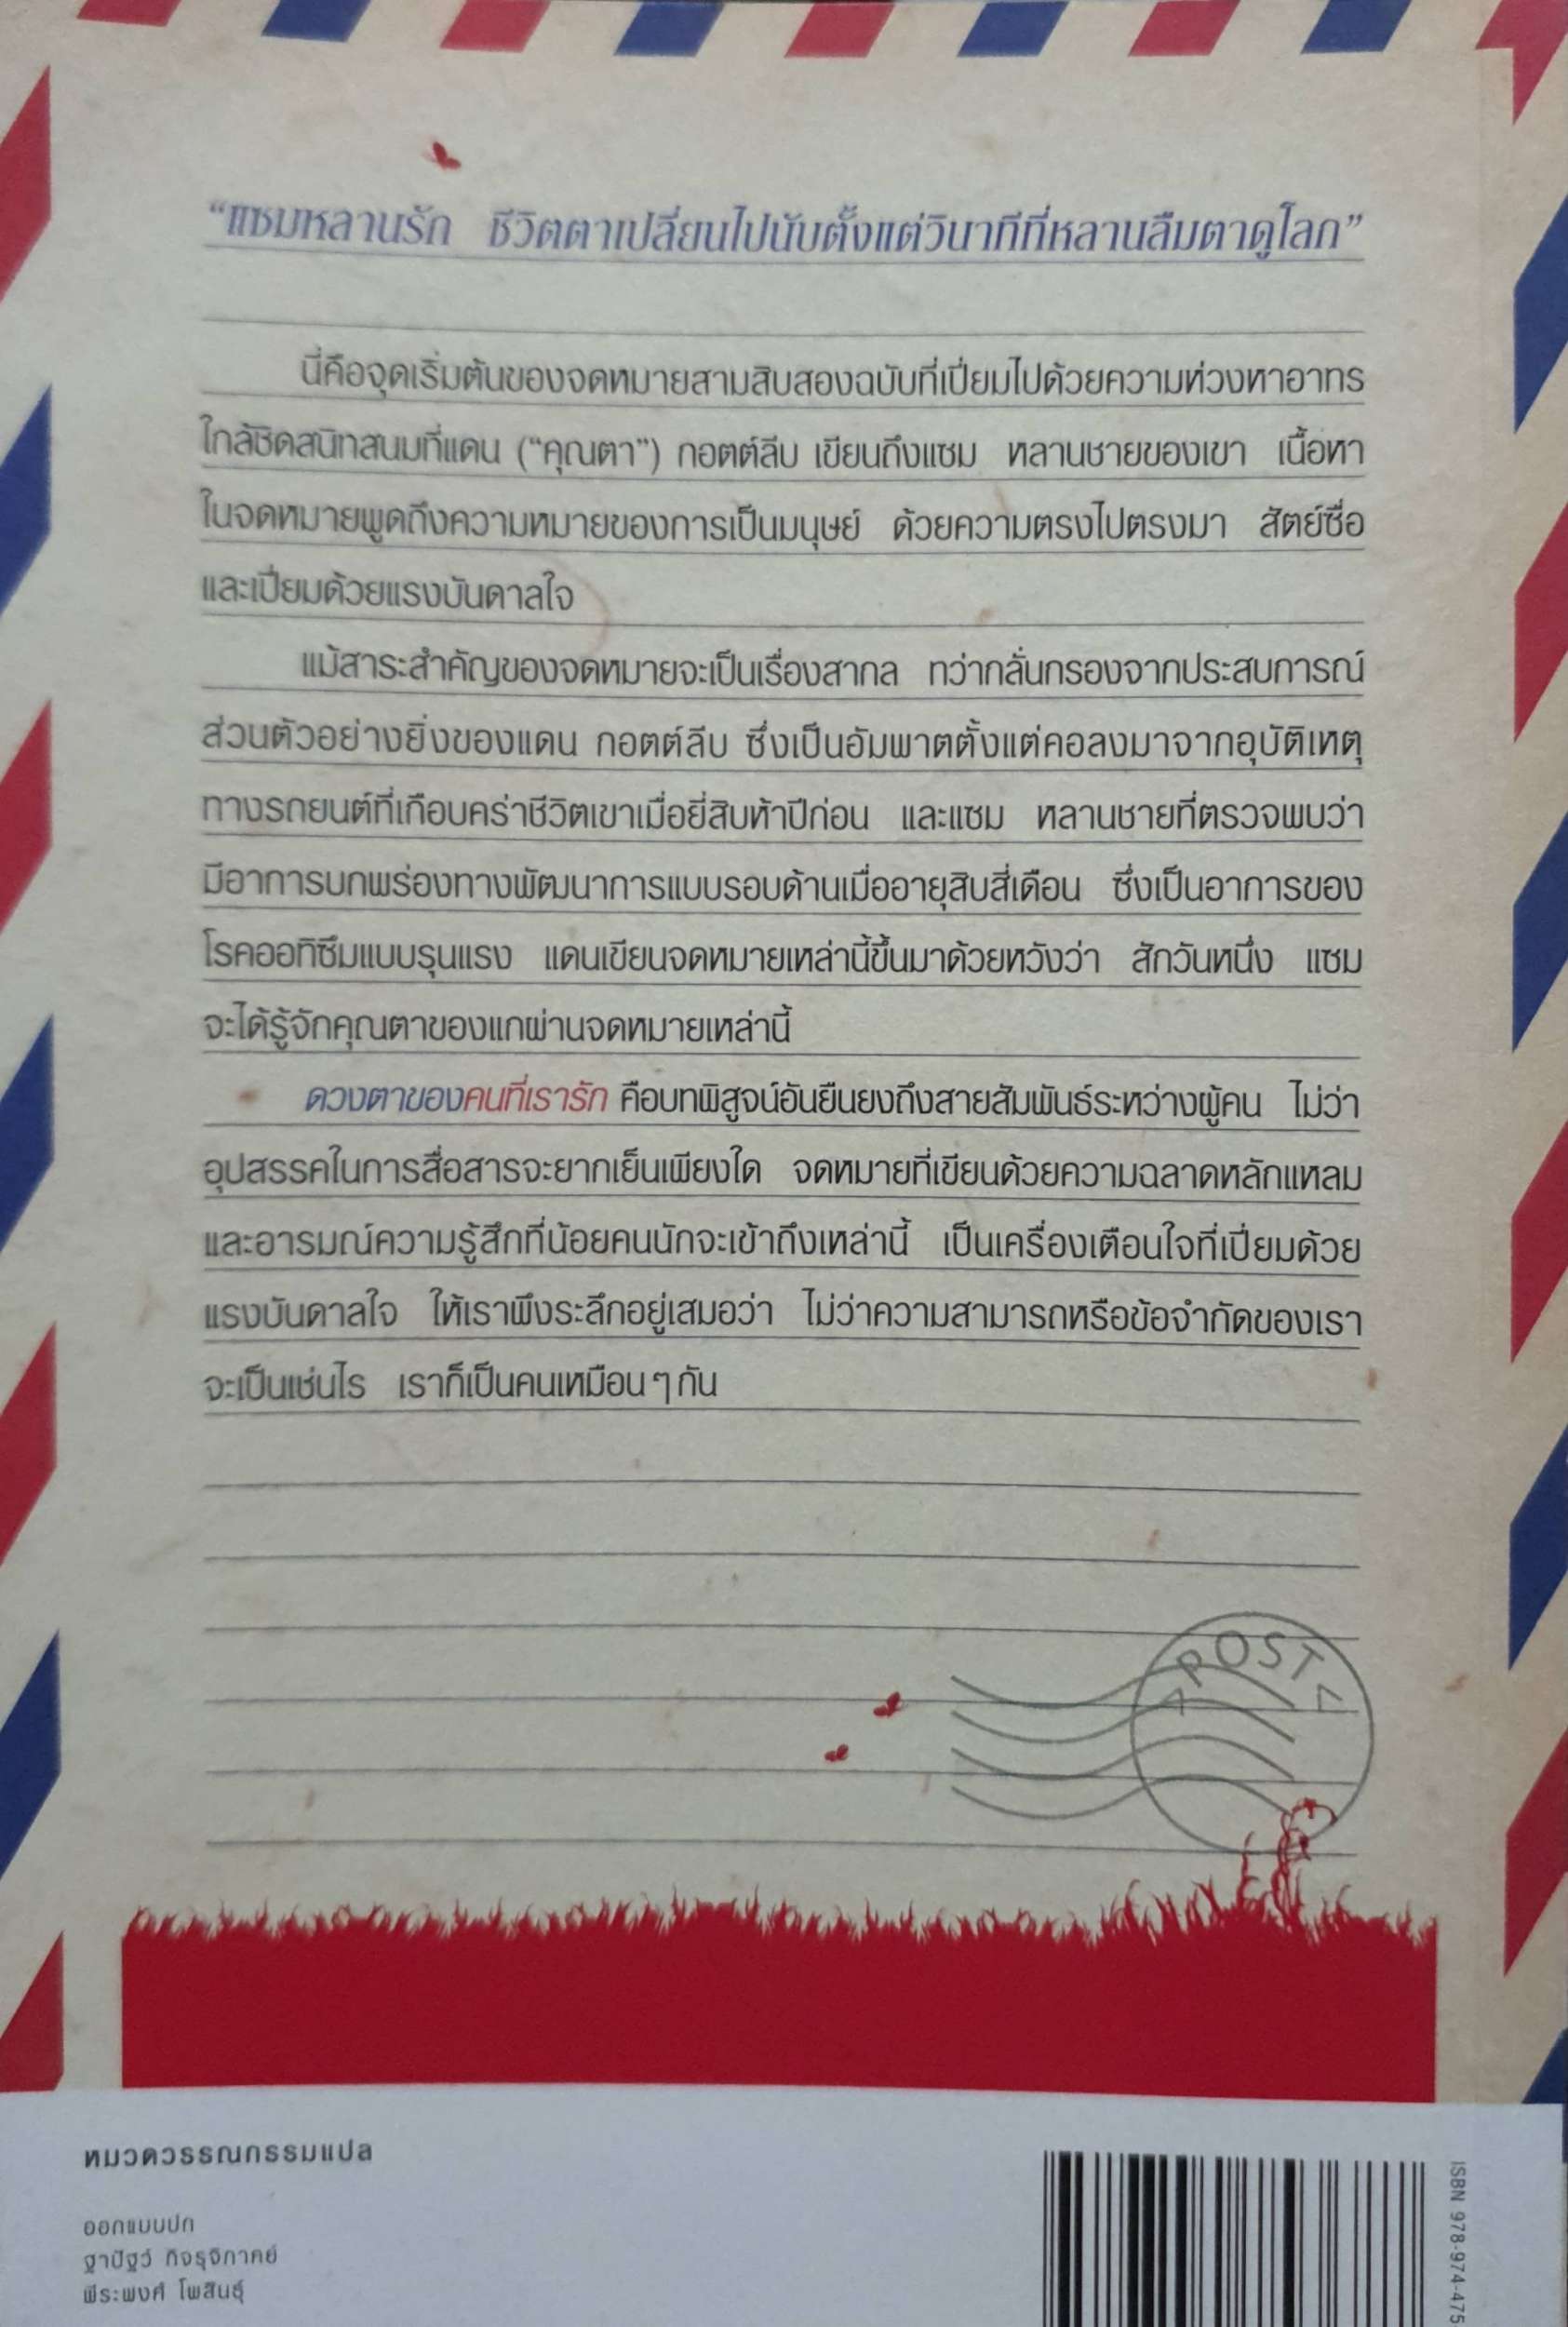 “แซมหลานรัก ชีวิตตาเปลี่ยนไปนับตั้งแต่วินาทีที่หลานลืมตาดูโลก”
นี่คือจุดเริ่มต้นของจดหมายสามสิบสองฉบับที่เปี่ยมไปด้วยความห่วงหาอาทร
ใกล้ชิดสนิทสนมที่แดน (“คุณตา”) กอตต์ลีบ เขียนถึงแซม หลานชายของเขา เนื้อหา
ในจดหมายพูดถึงความหมายของการเป็นมนุษย์ ด้วยความตรงไปตรงมา สัตย์ซื่อ
และเปี่ยมด้วยแรงบันดาลใจ
แม้สาระสำคัญของจดหมายจะเป็นเรื่องสากล ทว่ากลั่นกรองจากประสบการณ์
ส่วนตัวอย่างยิ่งของแดน กอตต์ลีบ ซึ่งเป็นอัมพาตตั้งแต่คอลงมาจากอุบัติเหตุ
ทางรถยนต์ที่เกือบคร่าชีวิตเขาเมื่อยี่สิบห้าปีก่อน และแซม หลานชายที่ตรวจพบว่า
มีอาการบกพร่องทางพัฒนาการแบบรอบด้านเมื่ออายุสิบสี่เดือน ซึ่งเป็นอาการของ
โรคออทิซึมแบบรุนแรง แดนเขียนจดหมายเหล่านี้ขึ้นมาด้วยหวังว่า สักวันหนึ่ง แซม
จะได้รู้จักคุณตาของแกผ่านจดหมายเหล่านี้
ดวงตาของคนที่เรารัก คือบทพิสูจน์อันยืนยงถึงสายสัมพันธ์ระหว่างผู้คน ไม่ว่า
อุปสรรคในการสื่อสารจะยากเย็นเพียงใด จดหมายที่เขียนด้วยความฉลาดหลักแหลม
และอารมณ์ความรู้สึกที่น้อยคนนักจะเข้าถึงเหล่านี้ เป็นเครื่องเตือนใจที่เปี่ยมด้วย
แรงบันดาลใจ ให้เราพึงระลึกอยู่เสมอว่า ไม่ว่าความสามารถหรือข้อจำกัดของเรา
จะเป็นเช่นไร เราก็เป็นคนเหมือนๆกัน
POST
หมวดวรรณกรรมแปล
ออกแบบปก
ฐาปัฐว์ กิจรุจิภาคย์
พีระพงศ์ โพสินธุ์
ISBN 978-974-475